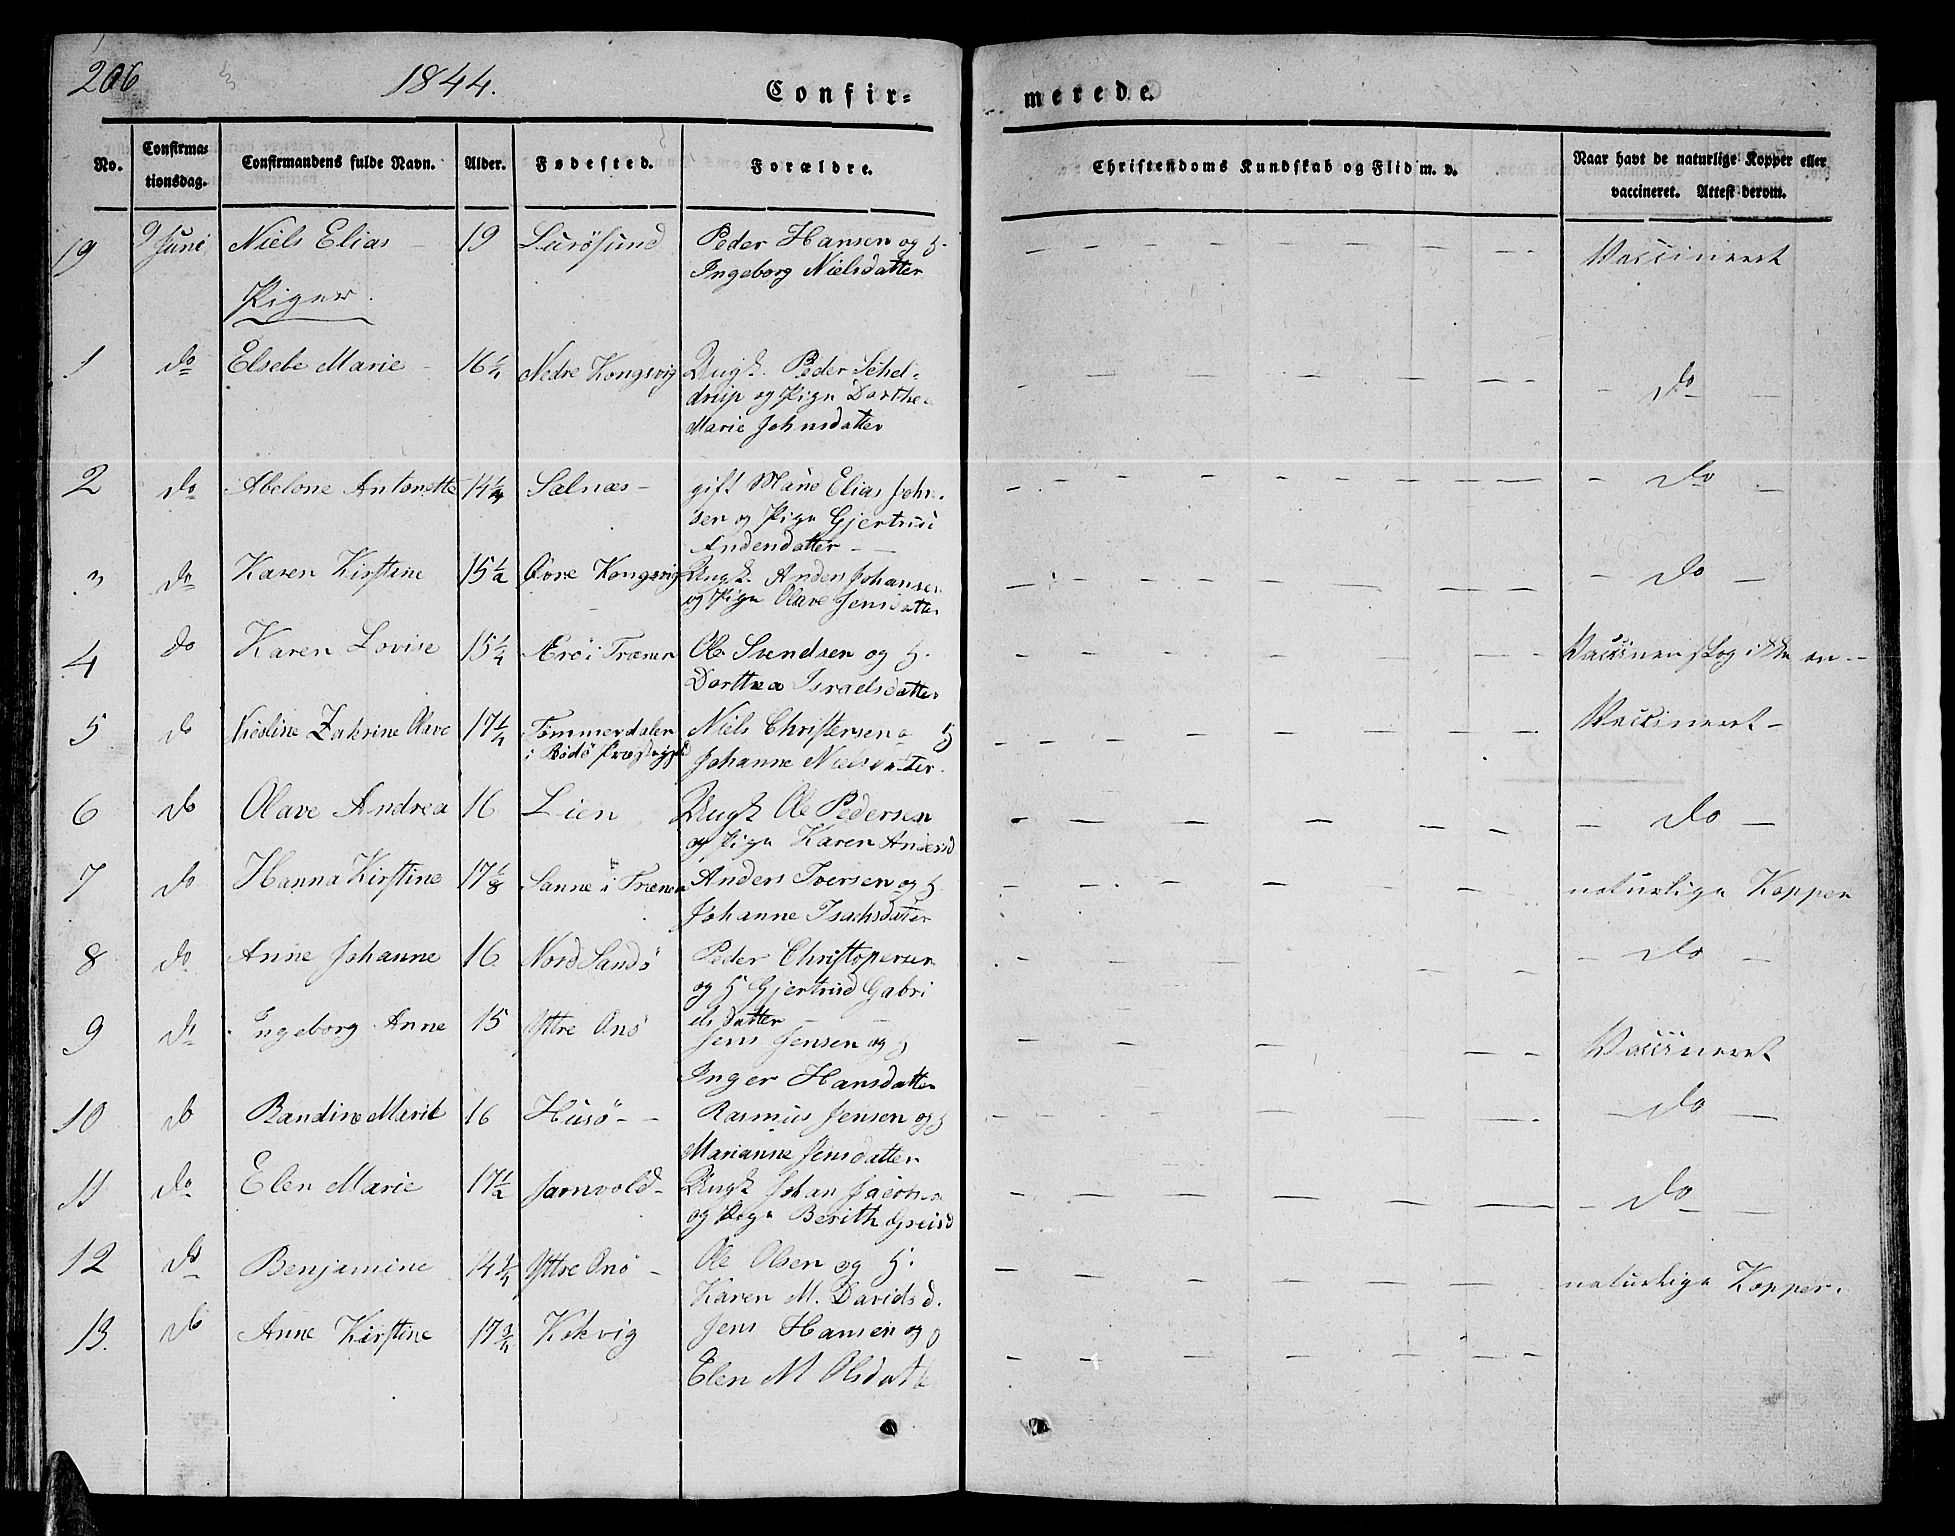 206
1844.
Confir=
merede.
No.
Confirma-
tionsdag.
Confirmandens fulde Navn.
Alder.
Fødested.
Forældre.
Christendoms Kundskab og Flid m. v.
Naar havt de naturlige Kopper eller
vaccineret. Attest derom.
19 9 Juni Niels Elias 19 Lurösund Peder Hansen og H. Vaccineret
Ingeborg Nielsdatter
Piger.
1 do Elsebe Marie 16 1/4 Nedre Kongsvig Ungk. Peder Schel- do
drup og Pige Dorthe
Marie Johnsdatter
2 do Abelone Antonette 14 1/4 Selnæs gift Mand Elias John- do
sen og Pige Gjertrud
Andersdatter
3 do Karen Kirstine 15 1/2 Övre Kongsvig Ungk. Anders Johansen do
og Pige Olave Jensdatter
4 do Karen Lovise 15 1/4 i Trænen Ole Svendsen og H. Vaccinen slog ikke an
Dorthea Israelsdatter
5 do Olave 17 1/4 Tömmerdalen Niels Christensen og H Vaccineret
i Bodö Præstegjeld Johanne Nielsdatter.
6 do Olave Andrea 16 Lien Ungk Ole Pedersen do
og Pige Karen Andersd
7 do Hanna Kirstine 17 1/8 Sanne i Trænen Anders Iversen og H. naturlige Kopper
Johanne Isachsdatter
8 do Anne Johanne 16 Nord Sandö Peder Christopersen do
og H Gjertrud Gabri
elsdatter
9 do Ingeborg Anne 15 Yttre Onö Jens Jensen og H Vaccineret
Inger Hansdatter
10 do Bandine Marie 16 Husö Rasmus Jensen og H do
Marianne Jensdatter
11 do Elen Marie 17 1/2 Jarnvold Ungk Johan do
og Pige Berith Greisd
12 do Benjamine 14 3/4 Yttre Onö Ole Olsen og H. naturlige Kopper.
Karen M. Davidsd.
13. do Anne Kirstine 17 3/4 Kokvig Jens Hansen og H
Elen M Olsdatt